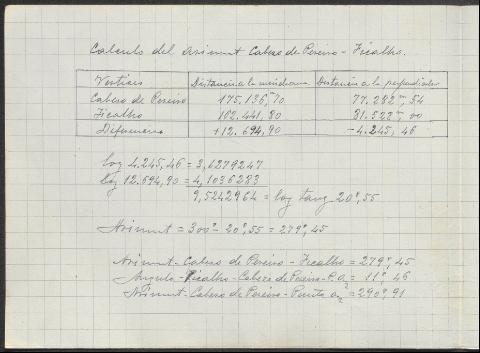 Calculo del Azimut Cabezo de Pereiro - Ficalho.
Vertices Distancia a la meridiana Distancia a la perpendicular
Cabezo de Pereiro 175.136,m70 77.282m, 54
Ficalho 162.441,80 81.528m, 00
Diferencia +12.694,90 -4.245, 46
log 4.245,46 = 3,6279247
log 12.694,90 = 4,1036283
9,5242964 = log tang 20g,55
Azimut = 300g - 20g,55 = 279g,45
Azimut - Cabezo de Pereiro - Ficalho = 279g,45
Angulo - Ficalho - Cabezo de Pereiro - P. a2 = 11g, 46
Azimut - Cabezo de Pereiro - Punto a2 = 290g,91